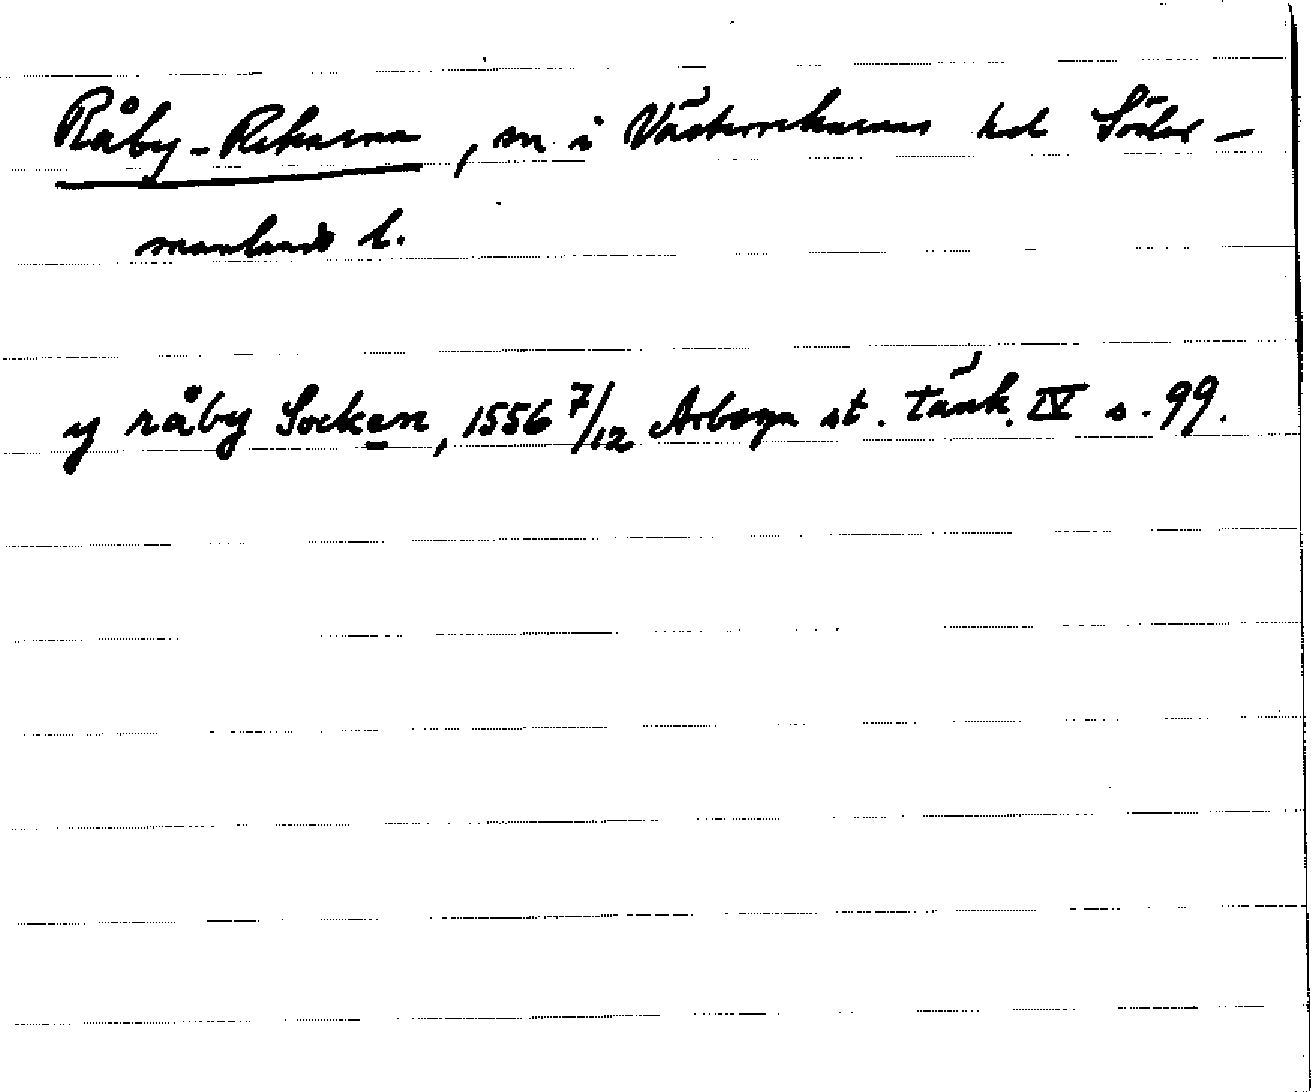 Råby-Rekarna, sn i Västerrekarnes hd Söder-
manlands l.
y råby Socken, 1556 7/12 Arboga st. tänk. IV s. 99.